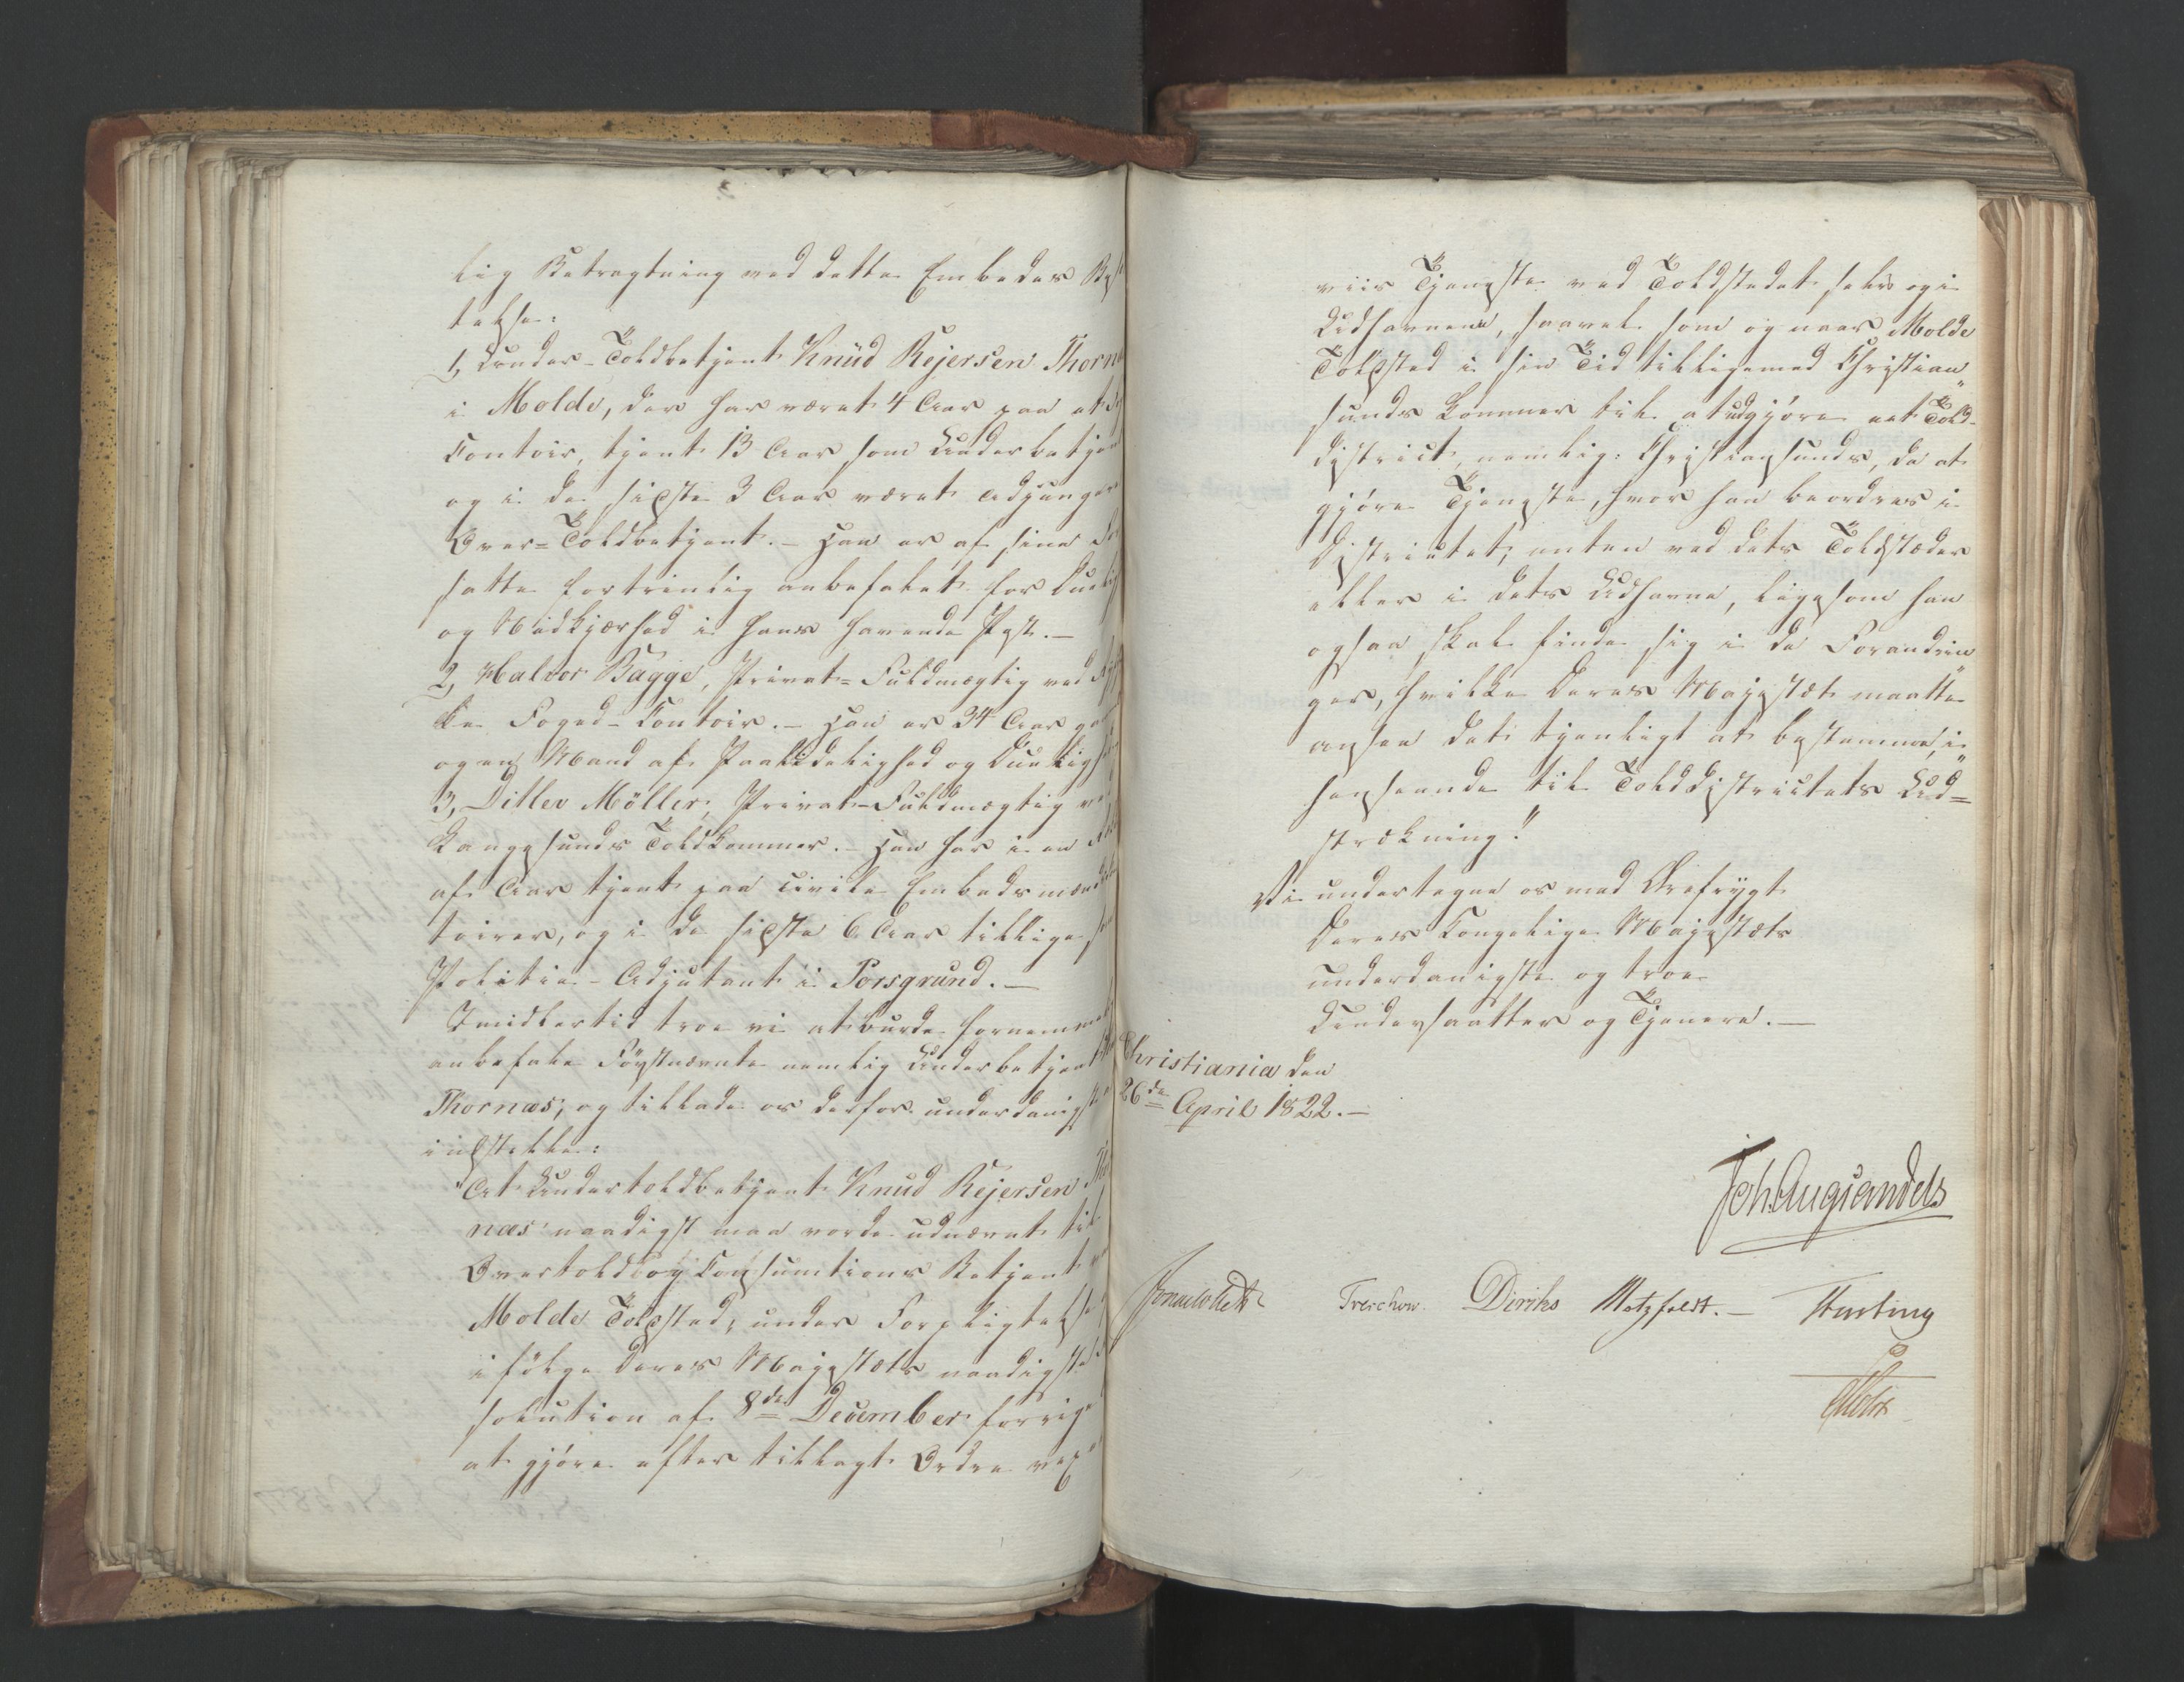 lig Betragtning ved dette Embedes Be
telse:
1, Under-Toldbetjent Knud Rejersen Thorn
i Molde, der har været 4 Aar paa et
Contoir, tjent 13 Aar som Underbetjen
og i de sidste 3 Aar været adjunger
Over-Toldbetjent. – Han er af sine Fo
satte fortrinlig anbefalet for Due
og Nidkjærhed i hans havende Post. –
2, Halvor Bagge, Privat-Fuldmægtig ved
ke Foged-Contoir. – Han er 34 Aar ga
og en Mand af Paalidelighed og Duelighe
3, Ditlev Möller, Privat-Fuldmægtig ve
Langesunds Toldkammer. – Han har i en
af Aar tjent paa civile Embedsmænds
toirer, og i de sidste 6 Aar tillige so
Politie-Adjutant i Porsgrund. –
Imidlertid troe vi at burde fornemme
anbefale Førstnævnte nemlig Underbetjent
Thornæs, og tillade os derfor underdanigst
indstille:
At Undertoldbetjent Knud Rejersen Tho
næs naadigst maa vorde udnævnt til
Overtold og Consumtions Betjent
Molde Toldsted, under Forpligtelse
ifølge Deres Majestæts naadigste
solution af 8de December forrige
at gjøre efter tillagt Ordre vex
viis Tjeneste ved Toldstedet selv og i
Udhavnene, saavel som og naar Molde
Toldsted i sin Tid tilligemed Christian
sunds kommer til at udgjøre eet Told-
district, nemlig: Christiansunds, da at
gjøre Tjeneste, hvor han beordres i
Districtet, enten ved dets Toldstæder
eller i dets Udhavne, ligesom han
ogsaa skal finde sig i de Forandrin
ger, hvilke Deres Majestæt maatte
ansee det tjenligt at bestemme, i
henseende til Tolddistrictets Ud=
strækning."
Vi undertegne os med Ærefrygt
Deres Kongelige Majestæts
underdanigste og troe
Undersaatter og Tjenere. –
Christiania den
26de April 1822. –
Joh. Aug Sandels
Sommerhielm
Treschow. Diriks Motzfeldt. – Fasting
Holst